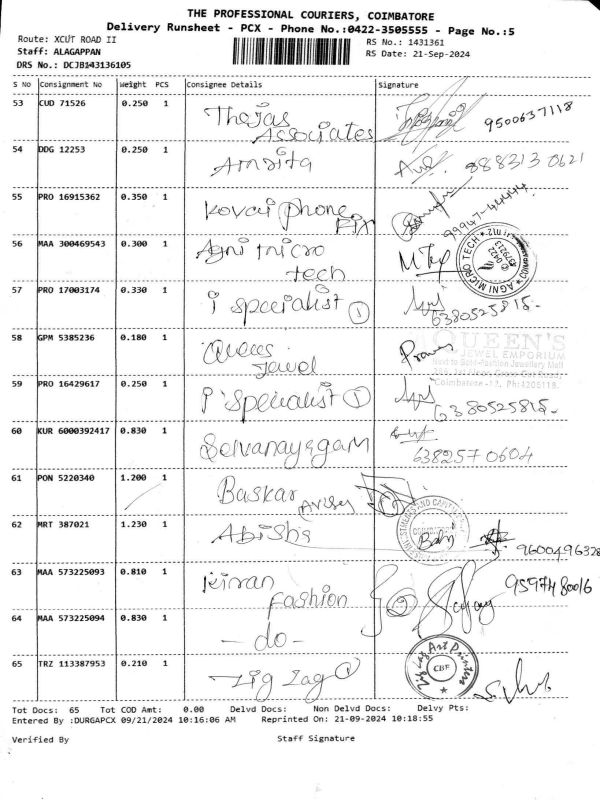 THE PROFESSIONAL COURIERS, COIMBATORE
Delivery Runsheet - PCX - Phone No.:0422-3505555 - Page No.:5
Route: XCUT ROAD II RS No.: 1431361
Staff: ALAGAPPAN RS Date: 21-Sep-2024
DRS No.: DCJB143136105
S No Consignment No Weight PCS Consignee Details Signature
53 CUD 71526 0.250 1 Thejas 9500637118
Associates
54 DDG 12253 0.250 1 Amrita 888313 0621
55 PRO 16915362 0.350 1 Kovai phone
FIX 99947-44444
56 MAA 300469543 0.300 1 Agni micro
tech
AGNI MICRO TECH
0422
4379213
57 PRO 17003174 0.330 1 i specialist 1
6380525815
58 GPM 5385236 0.180 1 Jewel
QUEEN'S
JEWEL EMPORIUM
Coimbatore-12. Ph:4206118.
59 PRO 16429617 0.250 1 i specialist 1 6380525815
60 KUR 6000392417 0.830 1 Selvanayagam
638257 0604
61 PON 5220340 1.200 1 Baskar
62 MRT 387021 1.230 1 9600496328
63 MAA 573225093 0.810 1 Kiran 9597480016
Fashion
64 MAA 573225094 0.830 1 - do -
65 TRZ 113387953 0.210 1 Zig Zag 1
Zig Zag Art Printers
CBE
Tot Docs: 65 Tot COD Amt: 0.00 Delvd Docs: Non Delvd Docs: Delvy Pts:
Entered By :DURGAPCX 09/21/2024 10:16:06 AM Reprinted On: 21-09-2024 10:18:55
Verified By Staff Signature